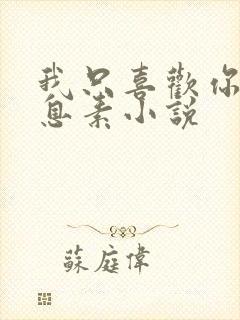 我只喜歡你
息素小說
蘇庭偉